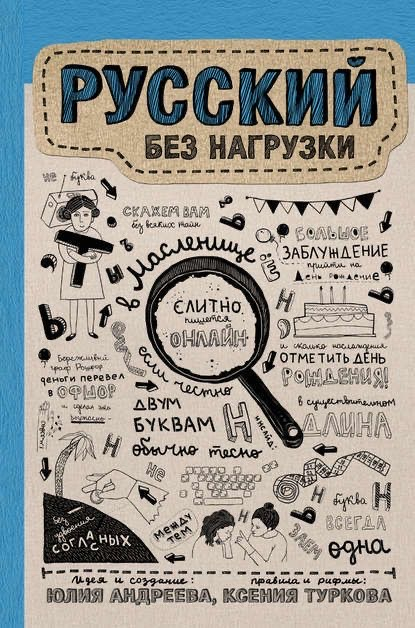 РУССКИЙ
БЕЗ НАГРУЗКИ
не буква
СКАЖЕМ ВАМ
без всяких тайн
в масленице
БОЛЬШОЕ
ЗАБЛУЖДЕНИЕ
прийти на
День рождение
СЛИТНО
пишется
ОНЛАЙН
и сколько наслаждения
ОТМЕТИТЬ ДЕНЬ
РОЖДЕНИЯ!
Бережливый
граф Рошфор
деньги перевел
в ОФШОР
и сделал это
если честно
ДВУМ
БУКВАМ
Н
обычно тесно
инсайд:
в существительном
ДЛИНА
не
буква Н
ВСЕГДА
одна
без удвоения
СОГЛАСНЫХ
МЕЖДУ
ТЕМ
Идея и создание:
правила и рифмы:
ЮЛИЯ АНДРЕЕВА, КСЕНИЯ ТУРКОВА